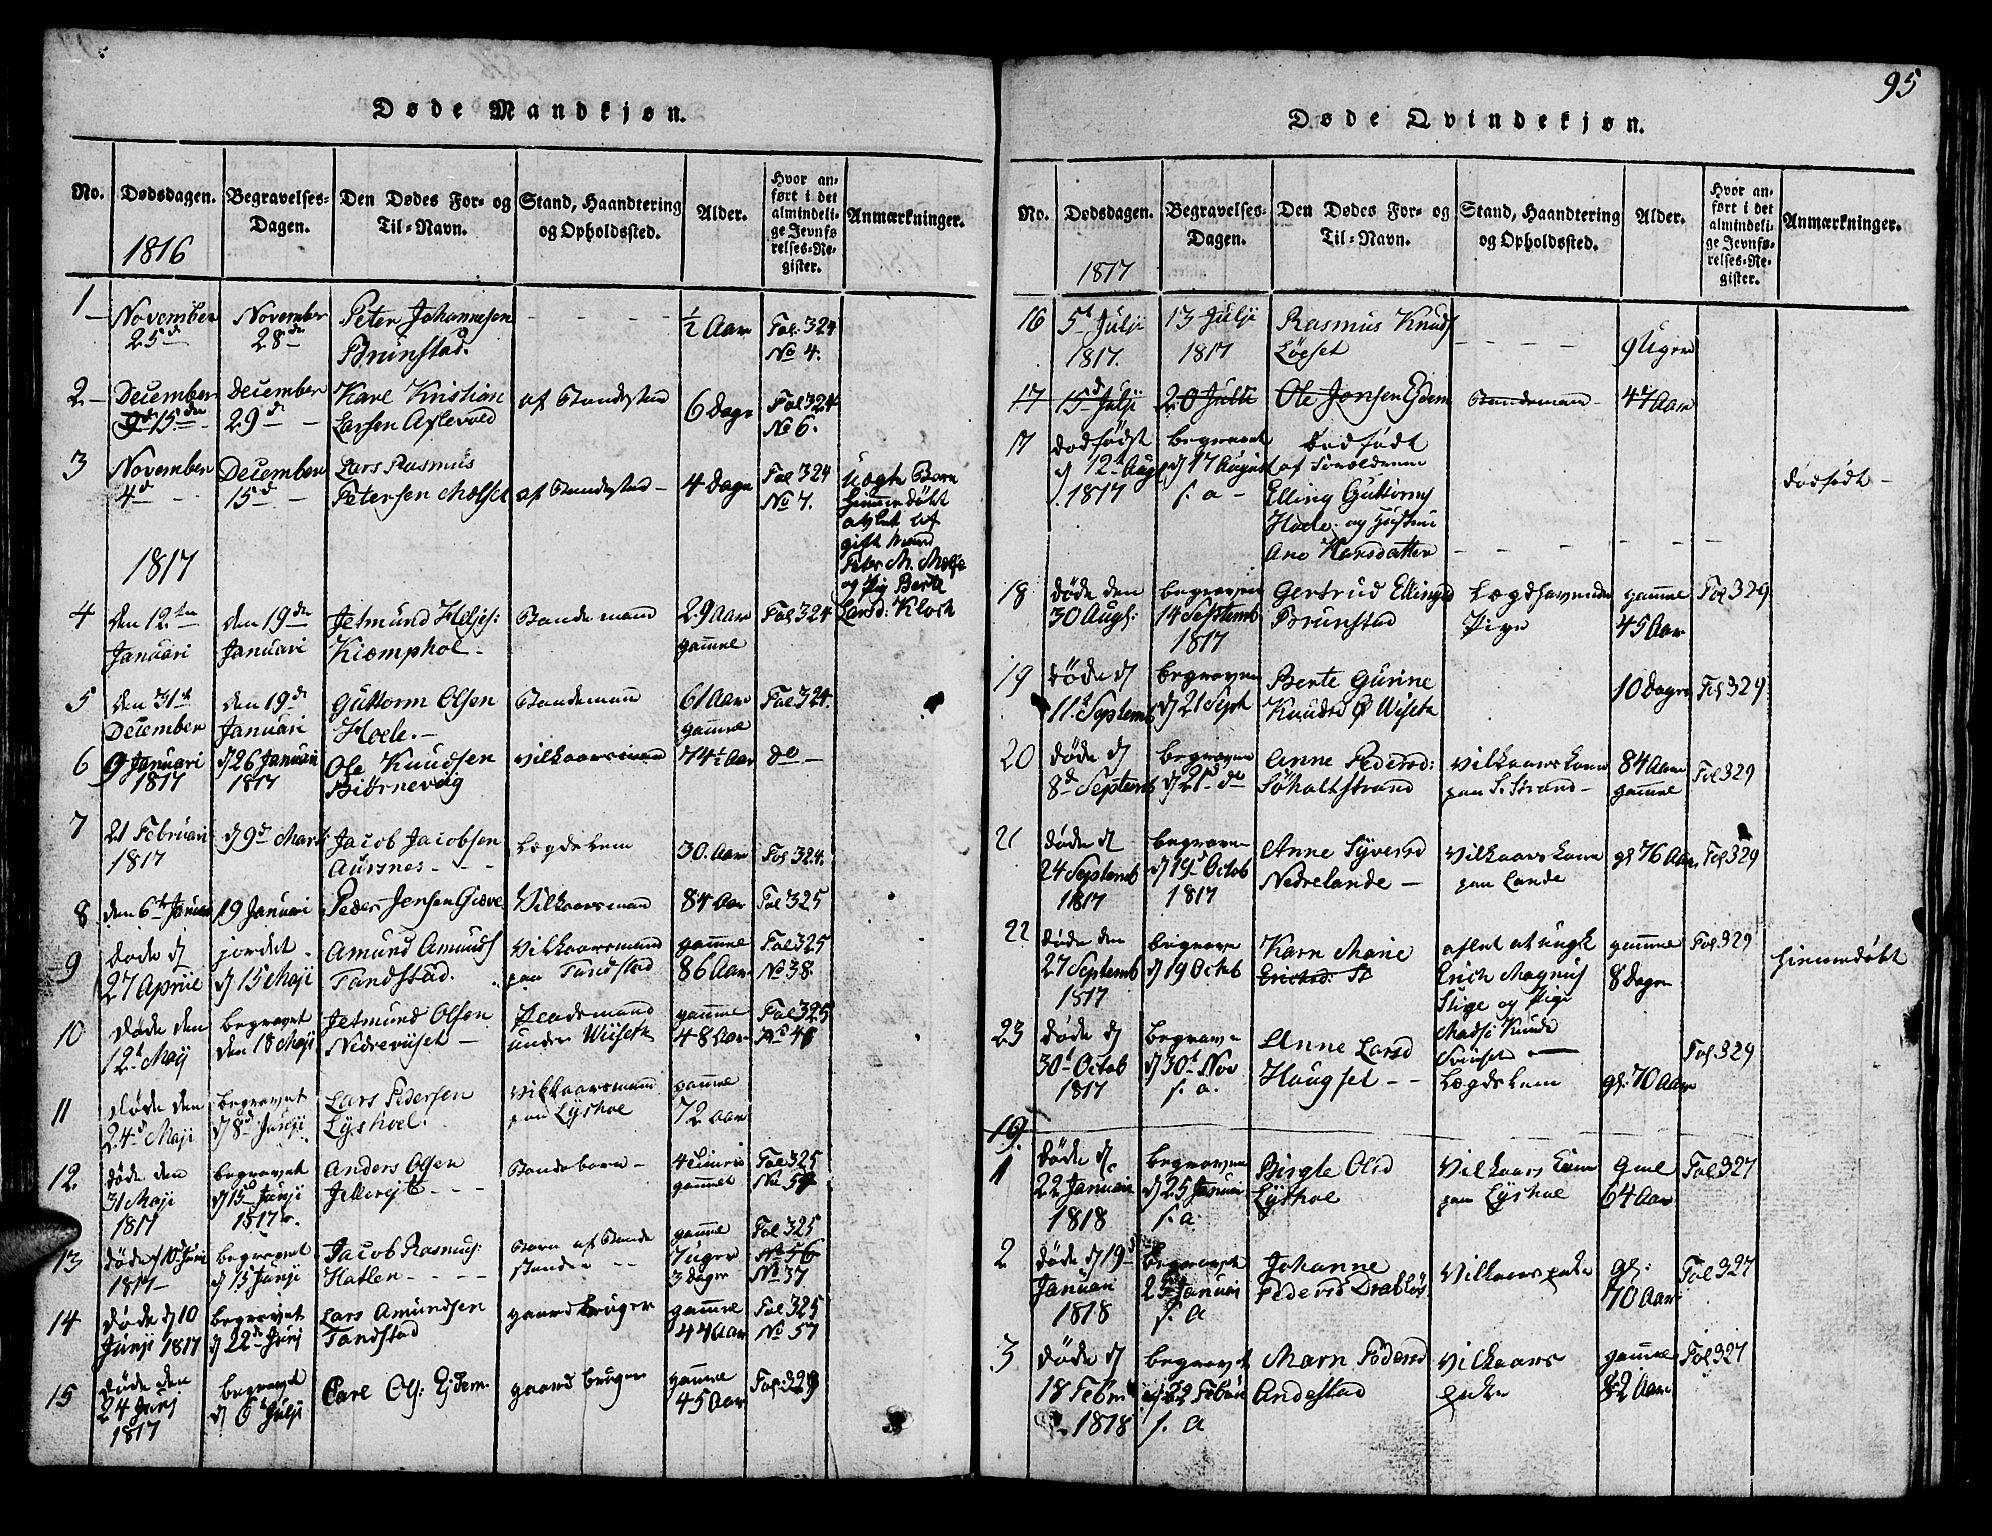 Døde Mandkjøn.
No. Dødsdagen. Begravelses-Dagen. Den Dødes For- og Til-Navn. Stand, Haandtering og Opholdssted. Alder. Hvor anført i det almindelige Jevnførelses-Register. Anmærkninger.
1816
1 November 25d November 28de Peter Johannesen Brunstad. ½ Aar Fol. 324 No 4.
2 December 9d 15den December 29d Karl Kristian Larsen Aflevold af Bondestad 6 Dage Fol 324 No 6.
3 November 4d December 15d Lars Rasmus Petersen Molset af Bondestad 4 Dage Fol 324 No 7. Uægte Barn hiemmedøbt avlet af gift Mand Peter M. Molse og Pig Berte Larsd: Kloch
1817
4 den 12ten Januari den 19de Januari Jetmund Heljes: Kiemphol Bondemand 29 Aar gamel Fol 324
5 den 31t December den 19d Januari Guttorm Olsen Hoele. Bondemand 61 Aar gamele Fol 324.
6 9 Januari 1817 d 26 Januari 1817 Ole Knudsen Biørnevog Vilkaarsmand 74½ Aar do
7 21 Februari 1817 d 9d Mart Jacob Jacobsen Aursnes Lægdelem 30. Aar Fol 324.
8 den 6t Januar 19 Januari Peder Jensen Giæve Vilkaarsmand 84 Aar Fol 325
9 døde d 27 Aprile jordet d 15 Maji Amund Amunds Tandstad. Vilkaarsmand paa Tandstad gamele 86 Aar Fol 325 No 38
10 døde den 12t Maij begravet den 18 Maji Jetmund Olsen Nedreviset Pladsmand under Wiiseth gamele 48 Aar Fol 325 No 41
11 døde den 24d Maji begravet d 8d Junji Lars Pedersen Lyshoel. Vilkaarsmand paa Lyshoe gamele 72 Aar
12. døde den 31 Maji 1817 begravet d 15d Junji 1817 Anders Olsen Jelle Bondebarn gammel Fol 325
13 døde d 10 Juni 1817 begravet d 15 Junji Jacob Rasmus: Hatlen Barn af Bondestanden gamle 7 uger 3 dager Fol 325 No 56 No 37
14 døde d 10 Junji 1817 begravet d 22de Junj Lars Amundsen Tandstad gaardbruger gamele 44 Aar Fol 325 No 57
15 døde den 24 Junj 1817 begravet d 6t Julji Carl Ols: Ejdem gaardbruger gamele 45 Aar Fol. 329
95
Døde Qvindekjøn.
No. Dødsdagen. Begravelses-Dagen. Den Dødes For- og Til-Navn. Stand, Haandtering og Opholdssted. Alder. Hvor anført i det almindelige Jevnførelses-Register. Anmærkninger.
1817
16 5t Julji 1817. 13 Julji 1817 Rasmus Knuds Løeset 9 Uger
17 15d Julji 20 Julli Ole Jonsen Ejdem Bondemand 47 Aar
17 dødfødt d 12t Aug 1817 begravet d 17 August s. a Dødfødt af Forældrene Elling Guttorms Hoele og Hustrue Ane Karsdatter dødfødt
18. døde den 30 Augs: begraven 14 Septemb 1817 Gertrud Ellingsd Brunstad Lægdhavende Pige gamele 45 Aar Fol 329
19 døde d 11t Septemb begraven d 21 Sept Berte Gurine Knudsd Ø Wiseth 10 Dage Fol 329
20 døde d 8d Septemb begraven d 21d do Anne Pedersd: Søholtstrand Vilkaarskone paa S. Strand 84 Aar gamele Fol 329
21 døde d 24 Septemb 1817 begraven d 19d Octob 1817 Anne Syversd Nedrelande Vilkaarskone paa Lande gl 76 Aar Fol 329
22 døde den 27 Septemb 1817 begrave d 19 Octob Karn Marie Ericksd. St aflet af ungk Erich Magnus Stige og Pige Madsi Knuds gamele 8 Dage Fol 329 hiemmedøbt
23 døde d 30t Octob 1817 begrave d 30t Nov s. a. Anne Larsd Haugset Lægdelem gl. 70 Aar Fol. 329
19.
1 døde d. 22 Januari 1818 begraven d 25 Januari s. a. Birgte Olsd Lyshoe Vilkaars Kone paa Lyshoe Gml 64 Aar Fol 327
2 døde d 19d Januari 1818 begravet 25 Januari s. a Johanne Pedersd Drabløs Vilkaars enke gl: 70 Aar Fol 327
3 døde d 18 Febr 1818 begravet d 22 Febru s. a Marn Pedersd Andestad Vilkaars enke gamele 82 Aar Fol 327